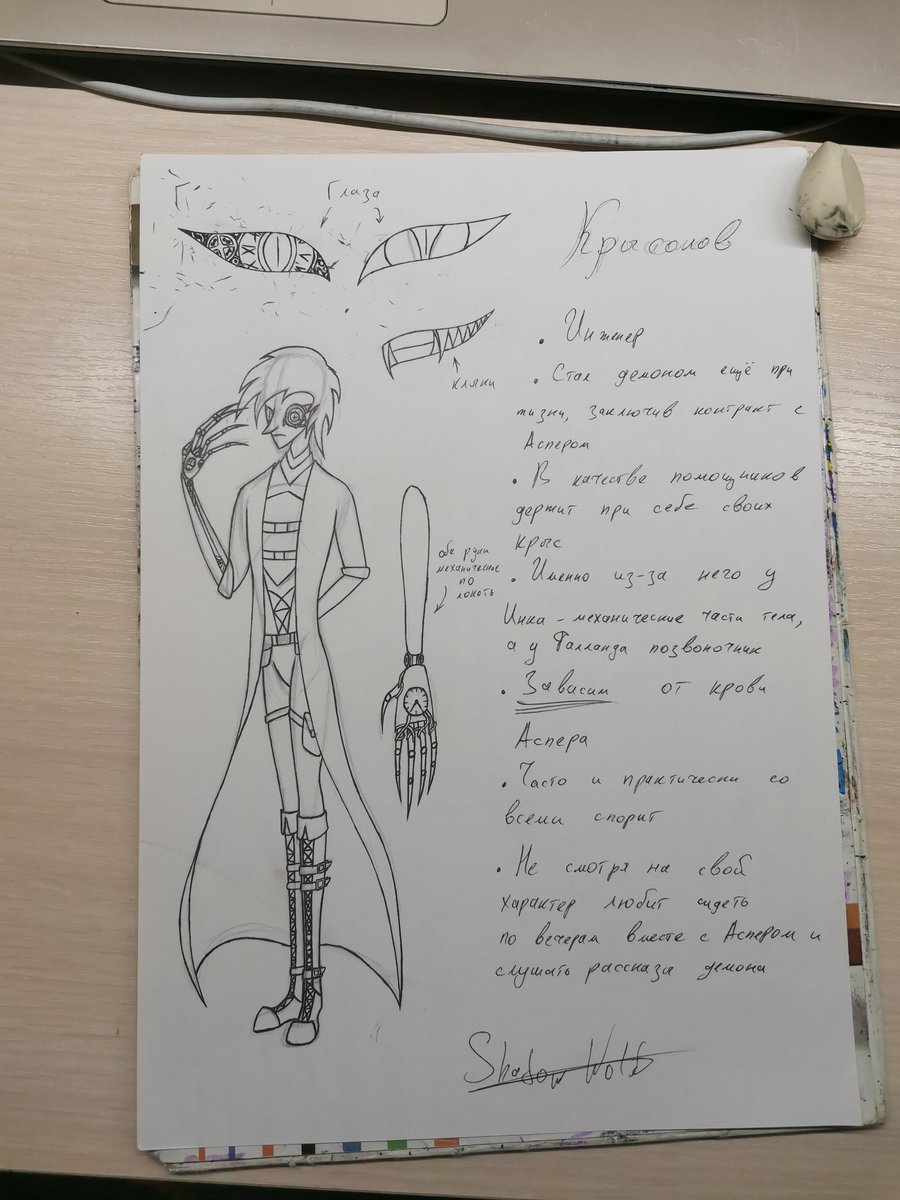 Глаза
Крысолов
клыки
• Инженер
• Стал демоном ещё при
жизни, заключив контракт с
Аспером
• В качестве помощников
держит при себе своих
крыс
обе руки
механические
по
локоть
• Именно из-за него у
Инка - механические части тела,
а у Фалланда позвоночник
• Зависим от крови
Аспера
• Часто и практически со
всеми спорит
• Не смотря на свой
характер любит сидеть
по вечерам вместе с Аспером и
слушать рассказа демона
Shadow Wolf